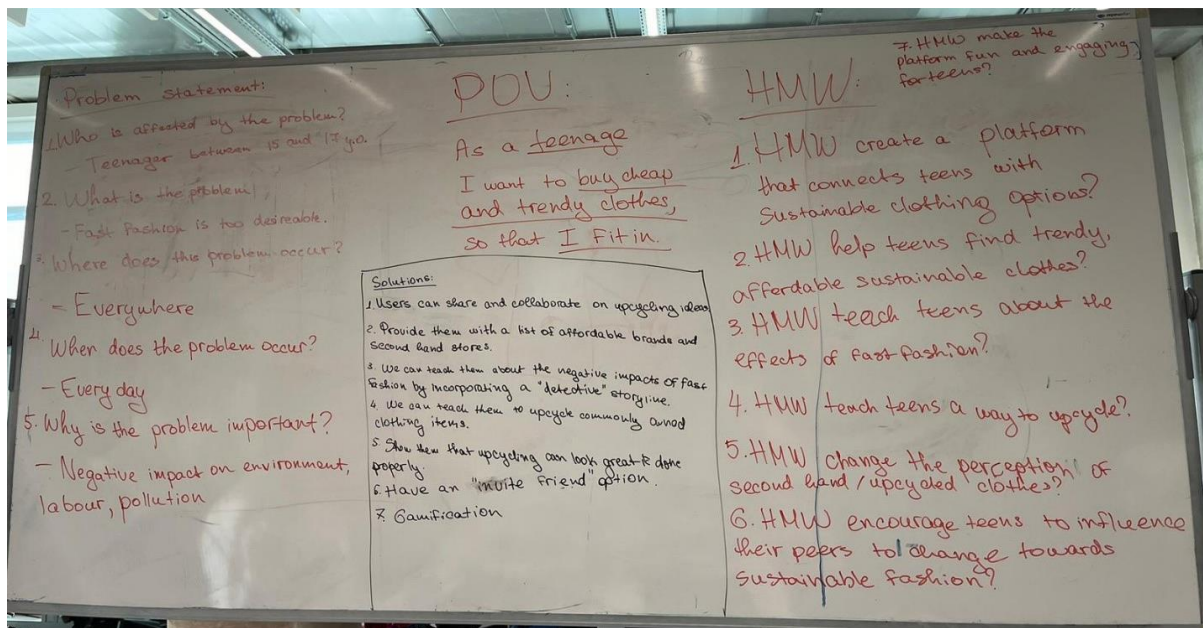 Problem statement:
1. Who is affected by the problem?
- Teenager between 15 and 17 y.o.
2. What is the problem?
- Fast Fashion is too desireable.
3. Where does this problem occur?
- Everywhere
4. When does the problem occur?
- Every day
5. Why is the problem important?
- Negative impact on environment,
labour, pollution
POV:
As a teenage
I want to buy cheap
and trendy clothes,
so that I fit in.
Solutions:
1. Users can share and collaborate on upcycling ideas
2. Provide them with a list of affordable brands and
second hand stores.
3. We can teach them about the negative impacts of fast
fashion by incorporating a "detective" storyline.
4. We can teach them to upcycle commonly owned
clothing items.
5. Show them that upcycling can look great if done
properly.
6. Have an "invite friend" option.
7. Gamification
HMW:
7. HMW make the
platform fun and engaging
for teens?
1. HMW create a platform
that connects teens with
sustainable clothing options?
2. HMW help teens find trendy,
afferdable sustainable clothes?
3. HMW teach teens about the
effects of fast fashion?
4. HMW teach teens a way to upcycle?
5. HMW change the perception of
second hand/upcycled clothes?
6. HMW encourage teens to influence
their peers to change towards
sustainable fashion?